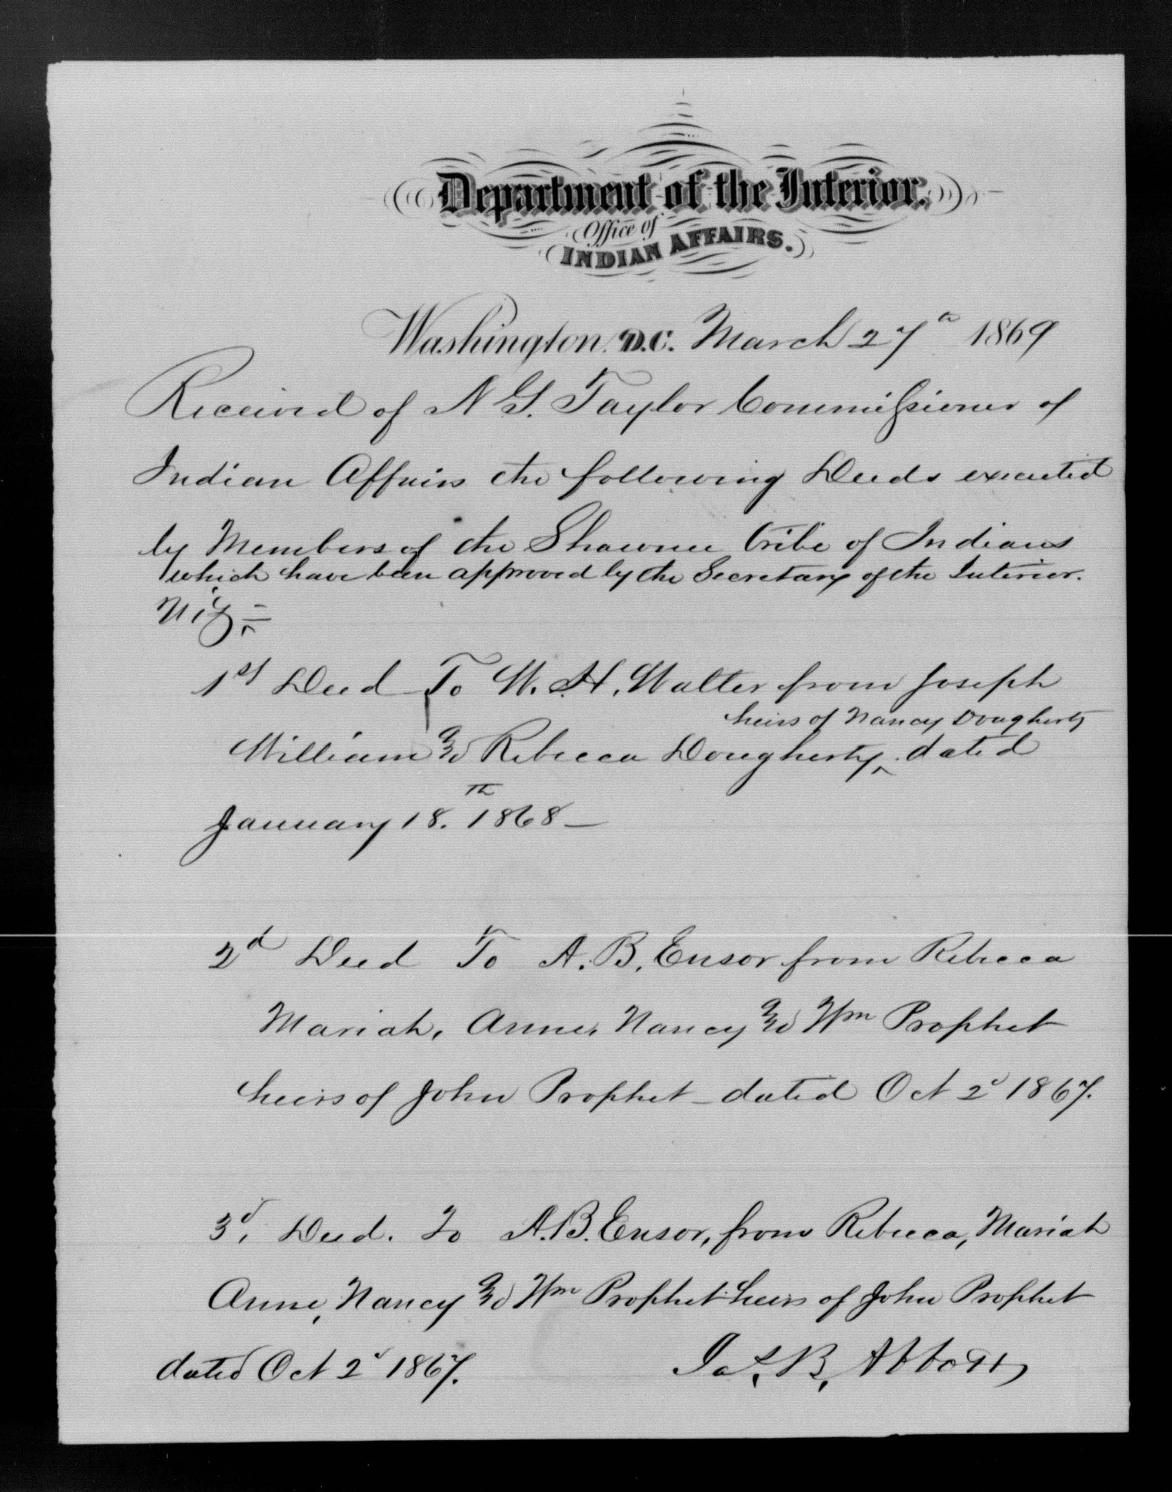 Department of the Interior.
Office of
INDIAN AFFAIRS.
Washington, D.C. March 27th 1869
Received of N G. Taylor Commissioner of
Indian Affairs the following Deeds executed
by Members of the Shawnee tribe of Indians
which have been approved by the Secretary of the Interior.
Viz:-
1st Deed To W. H. Walter from Joseph
heirs of Nancy Dougherty
William and Rebecca Dougherty ‸ dated
January 18.th 1868 -
2d Deed To A. B. Ensor from Rebecca
Mariah, Anne, Nancy and Wm Prophet
heirs of John Prophet - dated Oct 2d 1867.
3d, Deed. To A.B. Ensor, from Rebecca, Mariah
Anne, Nancy and Wm Prophet heirs of John Prophet
dated Oct 2d 1867.
Jas. B. Abbott,